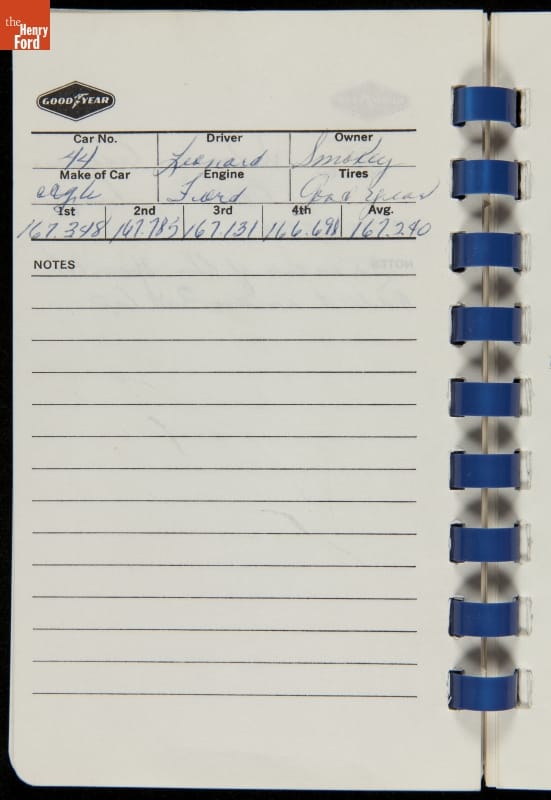 the
Henry
Ford
GOODYEAR
Car No. Driver Owner
44 Leonard Smokey
Make of Car Engine Tires
eagle Ford Good Year
1st 2nd 3rd 4th Avg.
167.348 167.785 167.131 166.698 167.240
NOTES